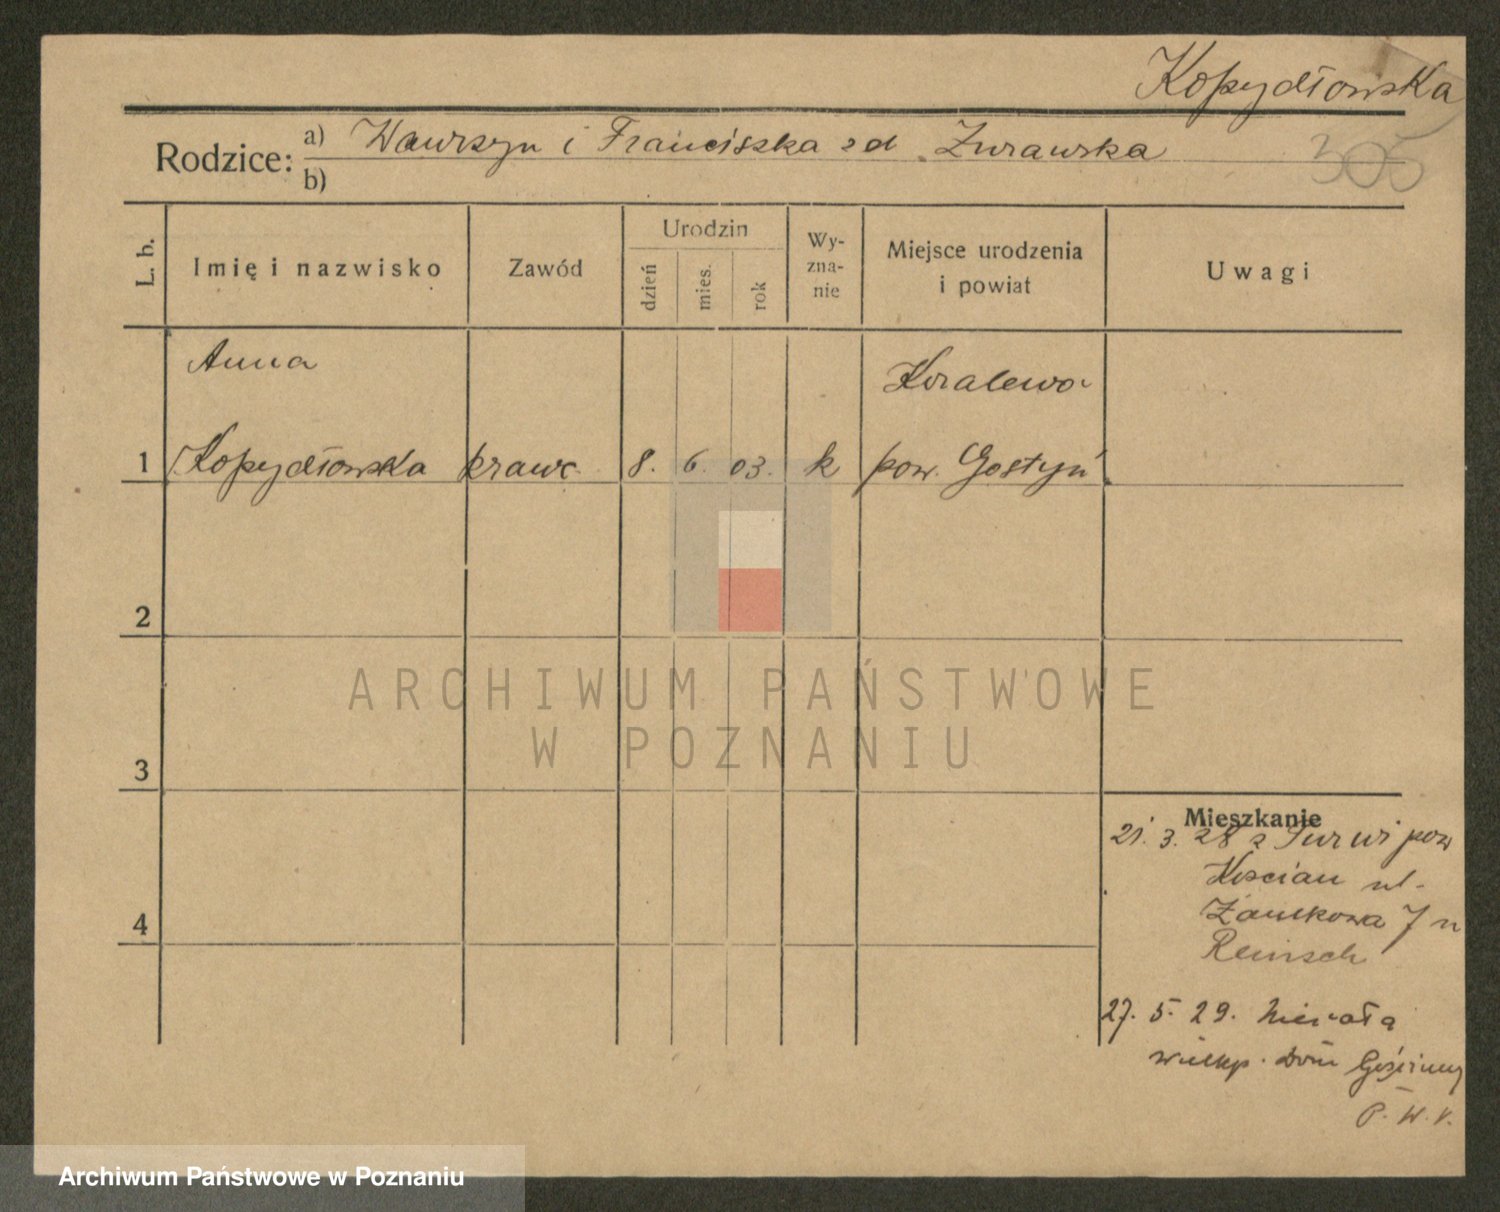 Kopydłowska
305
Rodzice: a) Wawrzyn i Franciszka zd. Żurawska
b)
L. b. Imię i nazwisko Zawód Urodzin dzień mies. rok Wy-zna-nie Miejsce urodzenia i powiat Uwagi
Anna Koralewo
1 Kopydłowska krawc. 8. 6. 03. k pow. Gostyń
2
3
4
Mieszkanie
21. 3. 28 z Turwi pow
Kościan ul.
Zamkowa 7 u
Reinsch
27. 5. 29.
wielkp. Dom Gościnny
P. W. V.
ARCHIWUM PAŃSTWOWE
W POZNANIU
Archiwum Państwowe w Poznaniu